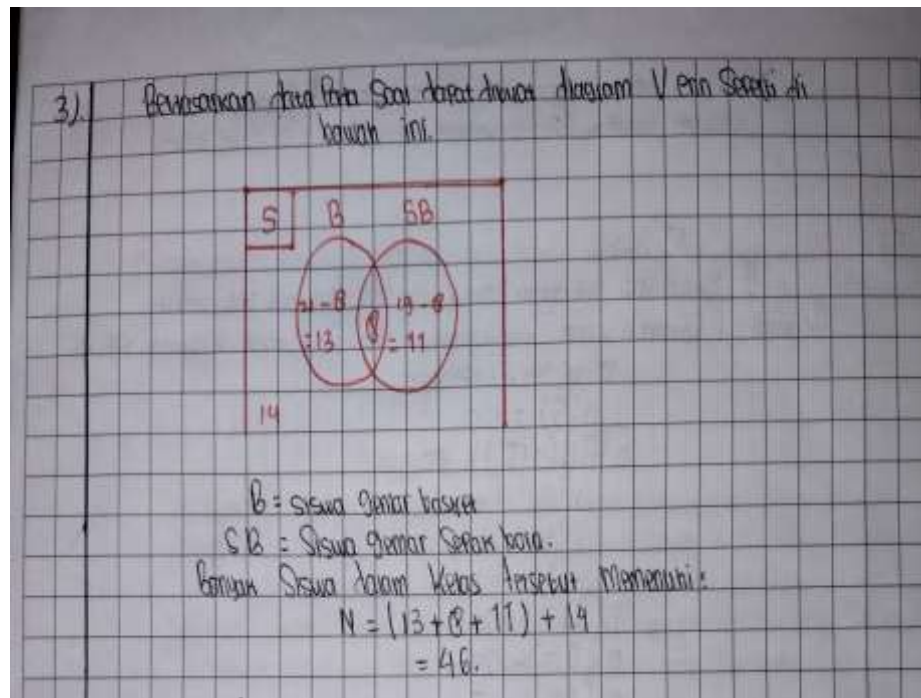 3). Berdasarkan data Pada Soal dapat dibuat diagram Venn Seperti di
bawah ini.
S B SB
21-8 19-8
=13 8 = 11
14
B = siswa gemar basket
SB = Siswa gemar Sepak bola.
Banyak Siswa dalam Kelas tersebut Memenuhi:
N = (13+8+11) + 14
= 46.